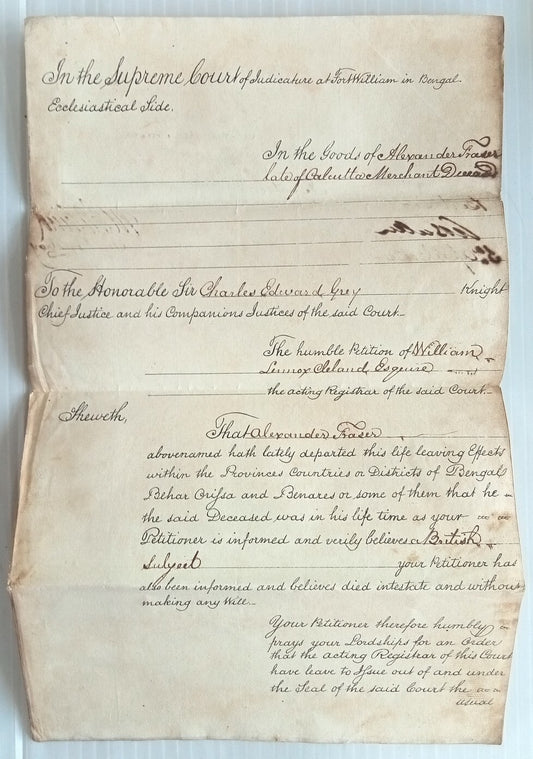 In the Supreme Court of Judicature at Fort William in Bengal.
Ecclesiastical Side,
In the Goods of Alexander Fraser
late of Calcutta Merchant Deceased
To the Honorable Sir Charles Edward Grey Knight
Chief Justice and his Companions Justices of the said Court
The humble Petition of William
Lennox Cleland Esquire
the acting Registrar of the said Court
Sheweth,
That Alexander Fraser
abovenamed hath lately departed this life leaving Effects
within the Provinces Countries or Districts of Bengal
Behar Orissa and Benares or some of them that he
the said Deceased was in his life time as your
Petitioner is informed and verily believes a British
Subject your Petitioner has
also been informed and believes died intestate and without
making any Will
Your Petitioner therefore humbly
prays your Lordships for an Order
that the acting Registrar of this Court
have leave to Issue out of and under
the Seal of the said Court the
usual